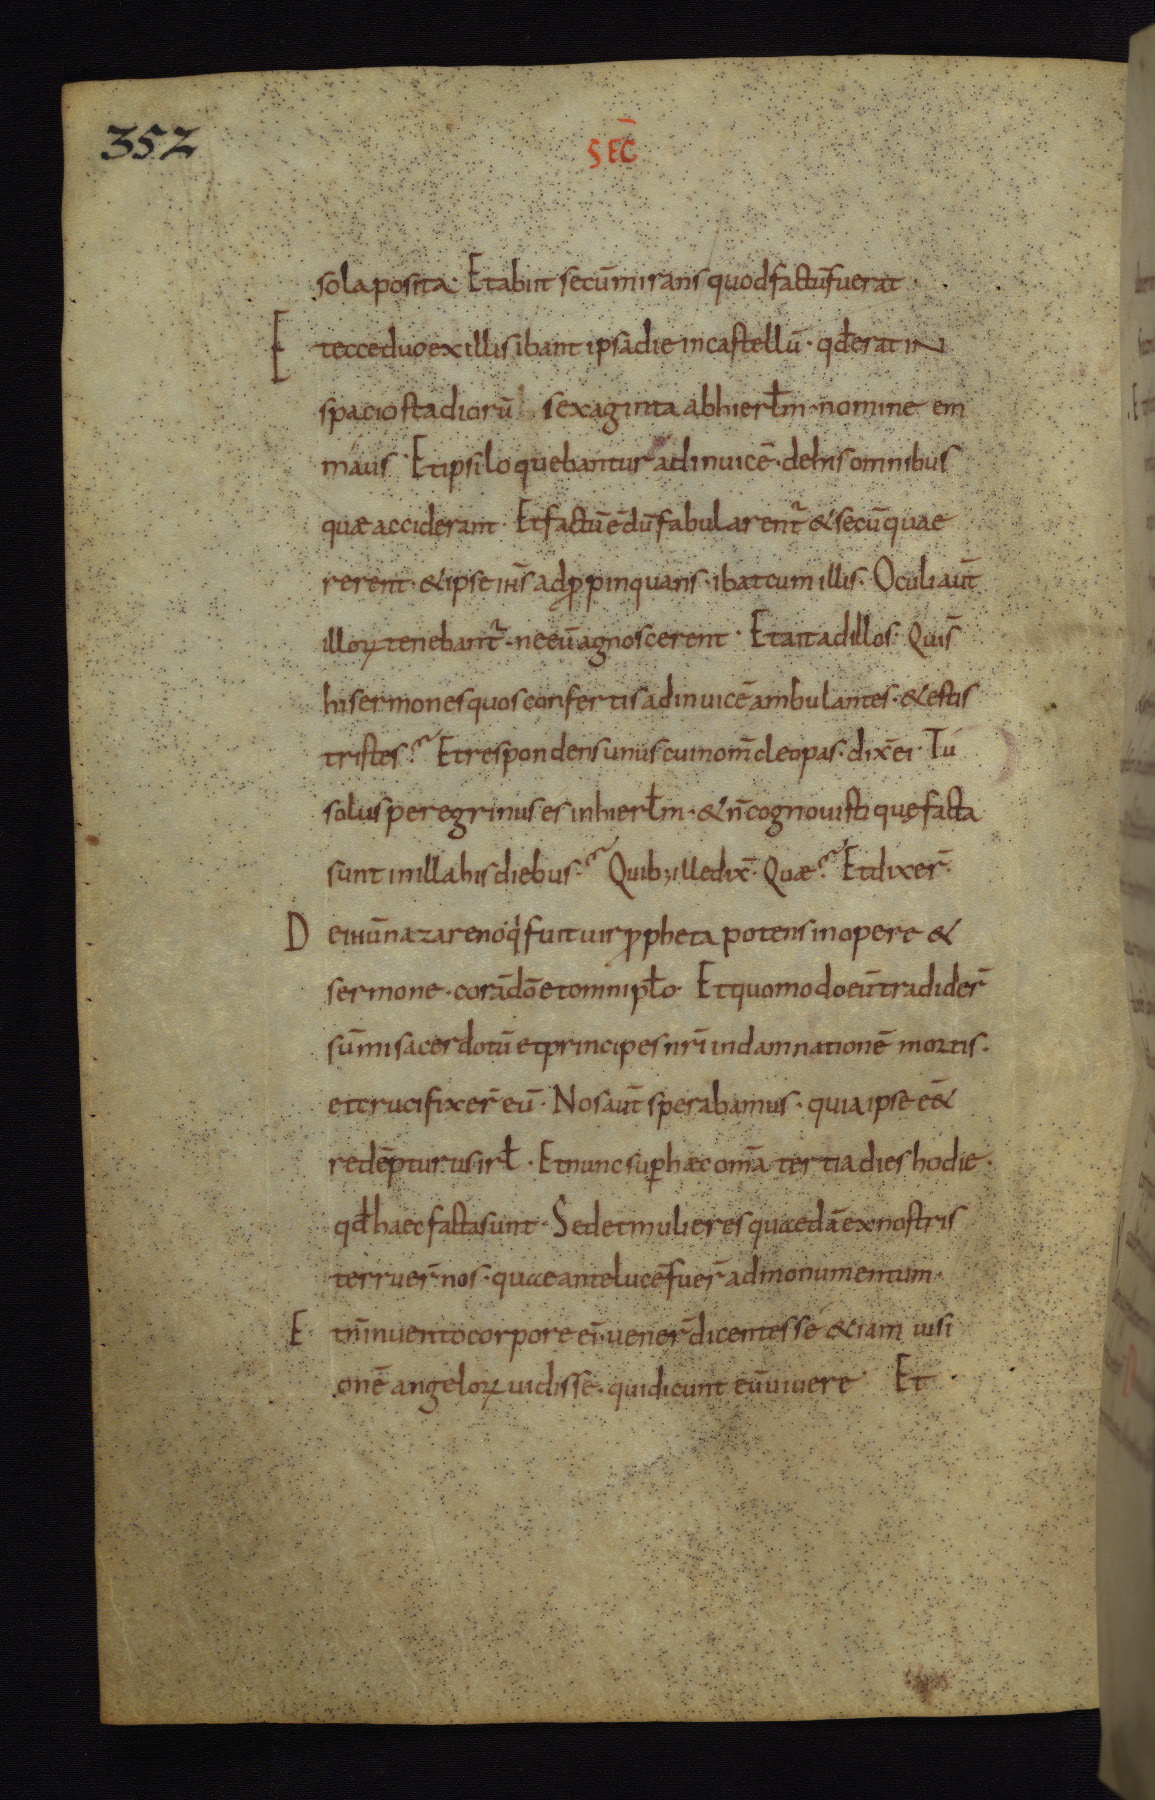 352
SEC̄
sola posita. Et abiit secū mirans quod factū fuerat.
Et ecce duo ex illis ibant ipsa die in castellū. qđ erat in
spacio stadiorū sexaginta ab hierłm. nomine em
maus. Et ipsi loquebantur ad inuicē. de his omnibus
quae acciderant. Et factū ē dū fabularent̄ & secū quae
rerent. & ipse ih̄s adꝓpinquans. ibat cum illis. Oculi aūt
illoꝝ tenebant̄. ne eū agnoscerent. Et ait ad illos. Qui s̄
hi sermones quos confertis ad inuicē ambulantes. & estis
tristes? Et respondens unus cui nom̄ cleopas. dix̄ ei. Tu
solus peregrinus es in hierłm. & n̄ cognouisti quę facta
sunt in illa his diebus? Quibꝫ ille dix̄. Quae? Et dixer̄.
De ihū nazareno q̇ fuit uir ꝓpheta potens in opere &
sermone. corā dō et omni pło. Et quomodo eū tradider̄
sūmi sacerdotū et principes nr̄i in damnationē mortis.
et crucifixer̄ eū. Nos aūt sperabamus. quia ipse eēt
redēpturus irł. Et nunc suꝑ haec omā tertia dies hodie.
qđ haec facta sunt. Sed et mulieres quaedā ex nostris
terruer̄ nos. quae ante lucē fuer̄ ad monumentum.
Et n̄ inuento corpore ei. uener̄ dicentes sé & iam uisi
onē angeloꝝ uidisse. qui dicunt eū uiuere Et